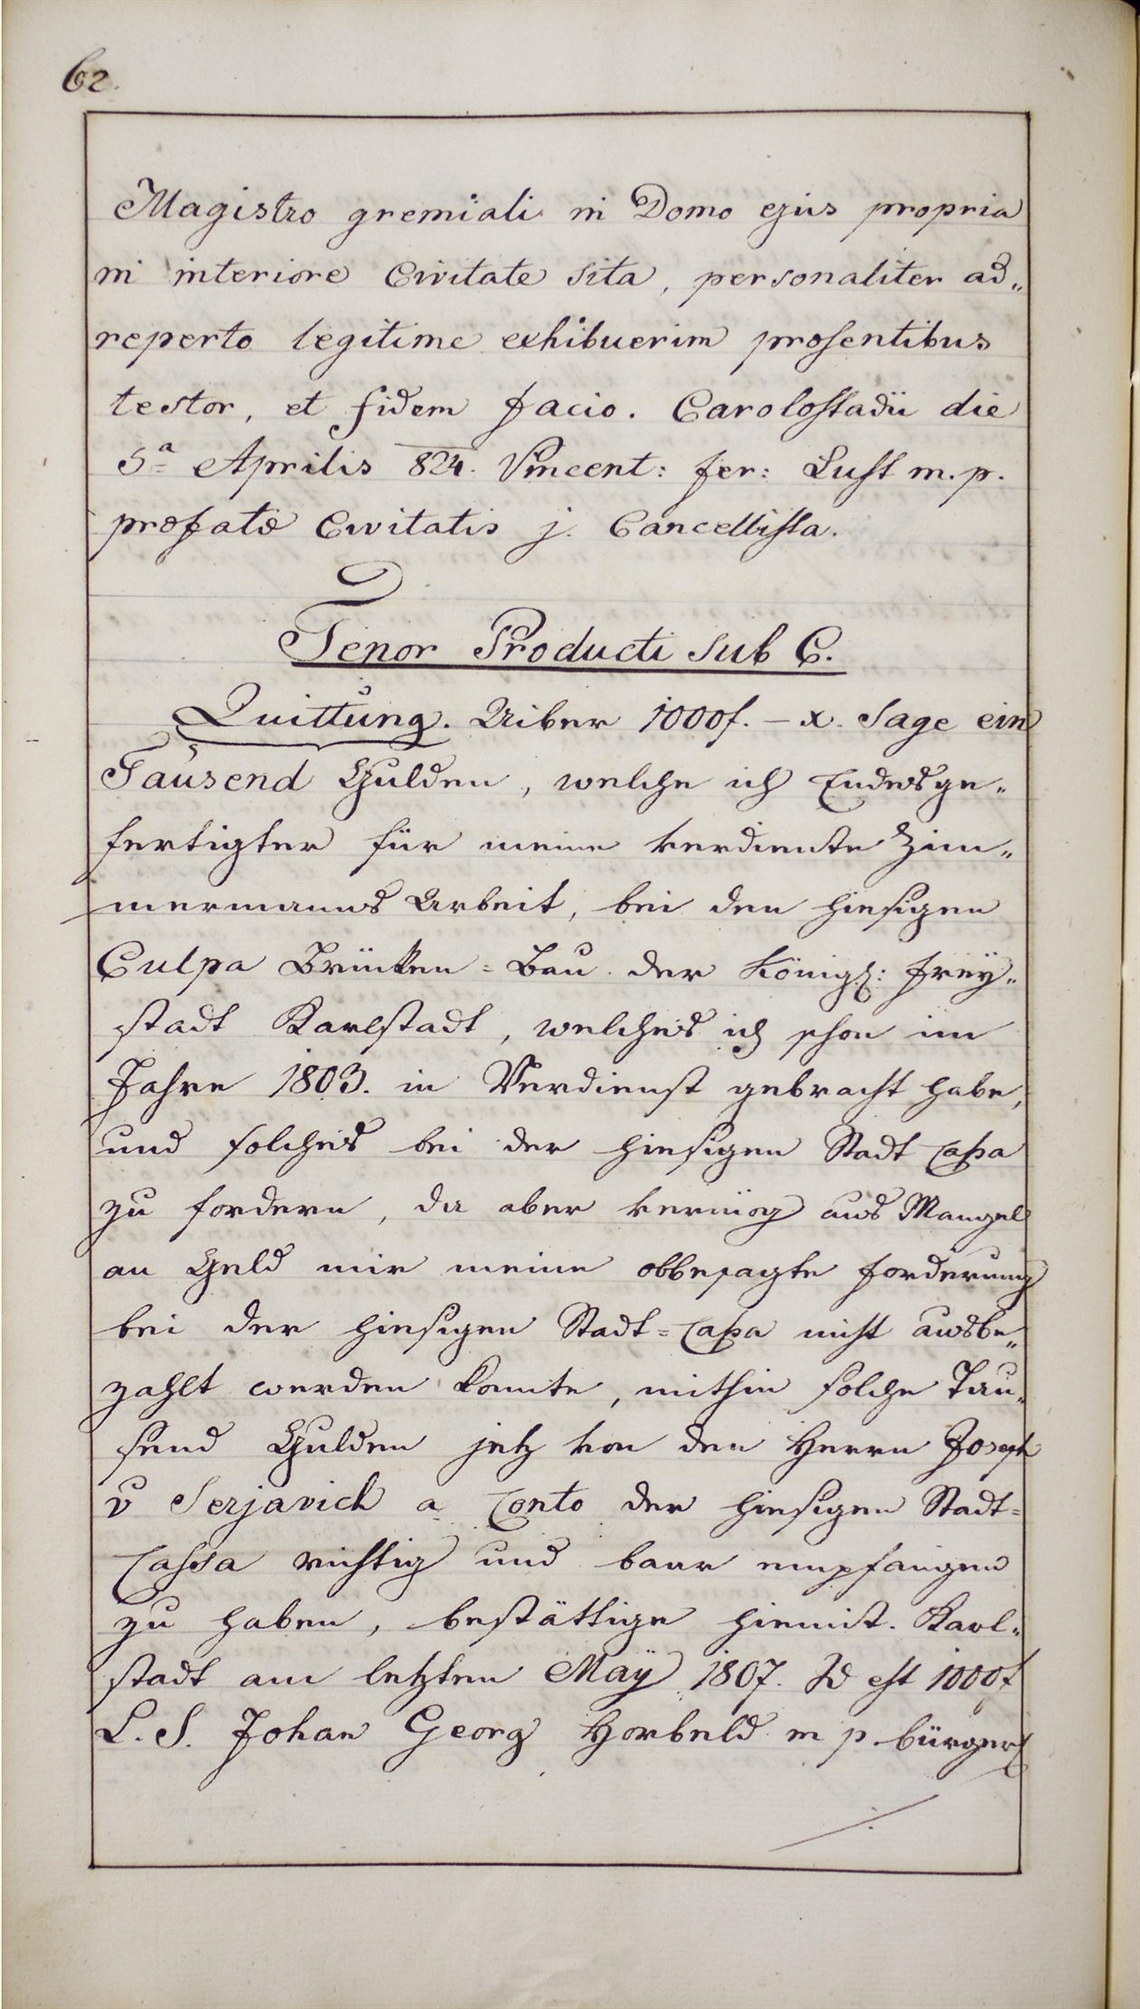 62.
Magistro gremiali in Domo ejus propria
in interiore Civitate sita, personaliter ad„
reperto legitime exhibuerim præsentibus
testor, et fidem facio. Carolostadii die
5a Aprilis 824. Vincent: Fer: Lust m. p.
præfatæ Civitatis j. Cancellista.
Tenor Producti sub C.
Quittung. Uiber 1000f. – x. Sage ein
Tausend Gulden, welche ich Endesge„
fertigter für meine verdiente Zim„
mermanns Arbeit, bei den hiesigen
Culpa Brücken=Bau der Königl: Freÿ„
stadt Karlstadt, welches ich schon im
Jahre 1803. in Verdienst gebracht habe,
und solches bei der hiesigen Stadt Cassa
zu fordern, da aber vermög aus Mangel
an Geld mir meine obbesagte Forderung
bei der hiesigen Stadt=Cassa nicht ausbe„
zahlt werden konnte, mithin solche Tau„
send Gulden jetz von den Herrn Joseph
v Serjavich a Conto der hiesigen Stadt=
Cassa richtig und baar empfangen
zu haben, bestättige hiemit. Karl„
stadt am letzten Maÿ 1807. Id est 1000f
L. S. Johan Georg Horbeld m p. bürgerl